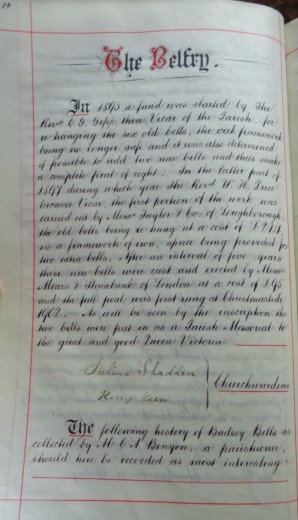 The Belfry.
In 1895 a fund was started by The
Revd then Vicar of the Parish, for
re-hanging the six old bells, the oak framework
being no longer safe and it was also determined
if possible to add two new bells and thus make
a complete peal of eight. In the latter part of
1897 during which year the Revd W. H. Price
became Vicar, the first portion of the work was
carried out by Messrs Taylor & Co. of Loughborough,
the old bells being re-hung at a cost of
in a framework of iron, space being provided for
two extra bells. After an interval of five years
these new bells were cast and erected by Messrs
Mears & Stainbank of London at a cost of
and the full peal was first rung at Christmastide
1902. As will be seen by the inscription the
two bells were put in as a Parish Memorial to
the great and good Queen Victoria.
Julius Sladden
Churchwardens
The following history of Badsey Bells as
collected by Mr C A Binyon, a parishioner,
should here be recorded as most interesting